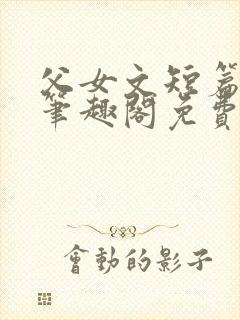 父女文短篇
筆趣閣免費
會動的影子